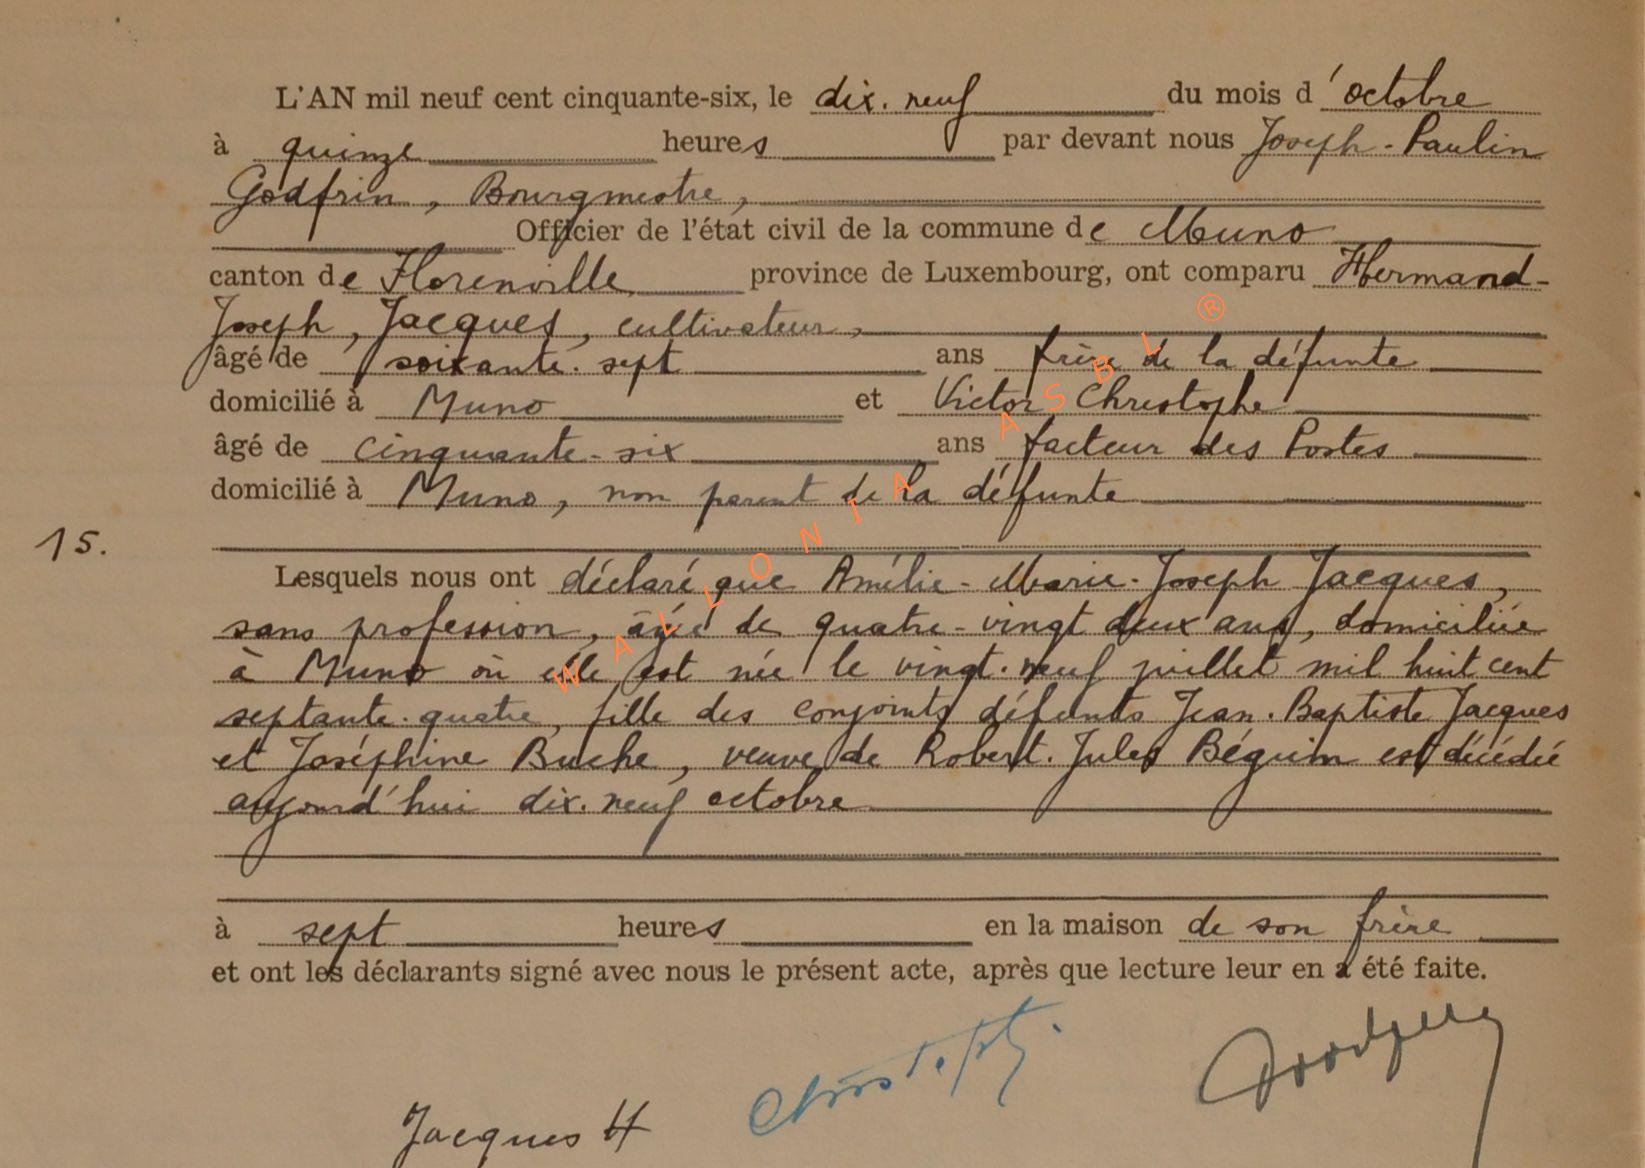 L'AN mil neuf cent cinquante-six, le dix-neuf du mois d'octobre
à quinze heures par devant nous Joseph-Paulin
Godfrin, Bourgmestre,
Officier de l'état civil de la commune de Muno
canton de Florenville province de Luxembourg, ont comparu Hermand-
Joseph, Jacques, cultivateur,
âgé de soixante-sept ans frère de la défunte
domicilié à Muno et Victor Christophe
âgé de cinquante-six ans facteur des Postes
domicilié à Muno, non parent de la défunte
15.
Lesquels nous ont déclaré que Amélie-Marie-Joseph Jacques,
sans profession, âgée de quatre-vingt deux ans, domiciliée
à Muno où elle est née le vingt-neuf juillet mil huit cent
septante-quatre, fille des conjoints défunts Jean-Baptiste Jacques
et Joséphine Buche, veuve de Robert-Jules Béguin est décédée
aujourd'hui dix-neuf octobre
à sept heures en la maison de son frère
et ont les déclarants signé avec nous le présent acte, après que lecture leur en a été faite.
Jacques H
Christophe
WALLONIA ASBL ®